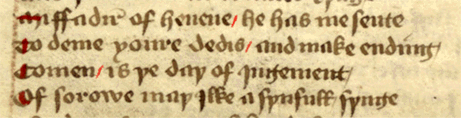 Mi ffadir of heuene he has me sente
To deme youre dedis and make ending
Comen is þe day of jugement
Of sorowe may ilke a synfull synge